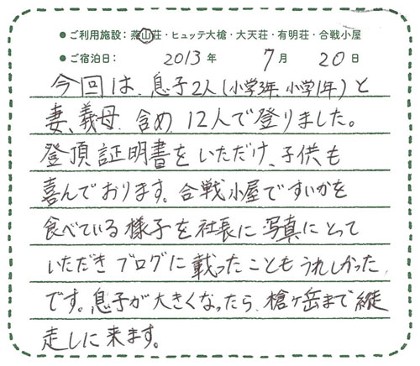 ●ご利用施設：燕山荘・ヒュッテ大槍・大天荘・有明荘・合戦小屋
●ご宿泊日： 2013年 7月 20日
今回は、息子2人(小学3年、小学1年)と
妻、義母、含め、12人で登りました。
登頂証明書をいただけ、子供も
喜んでおります。合戦小屋ですいかを
食べている様子を社長に写真にとって
いただきブログに載ったこともうれしかった
です。息子が大きくなったら、槍ヶ岳まで縦
走しに来ます。